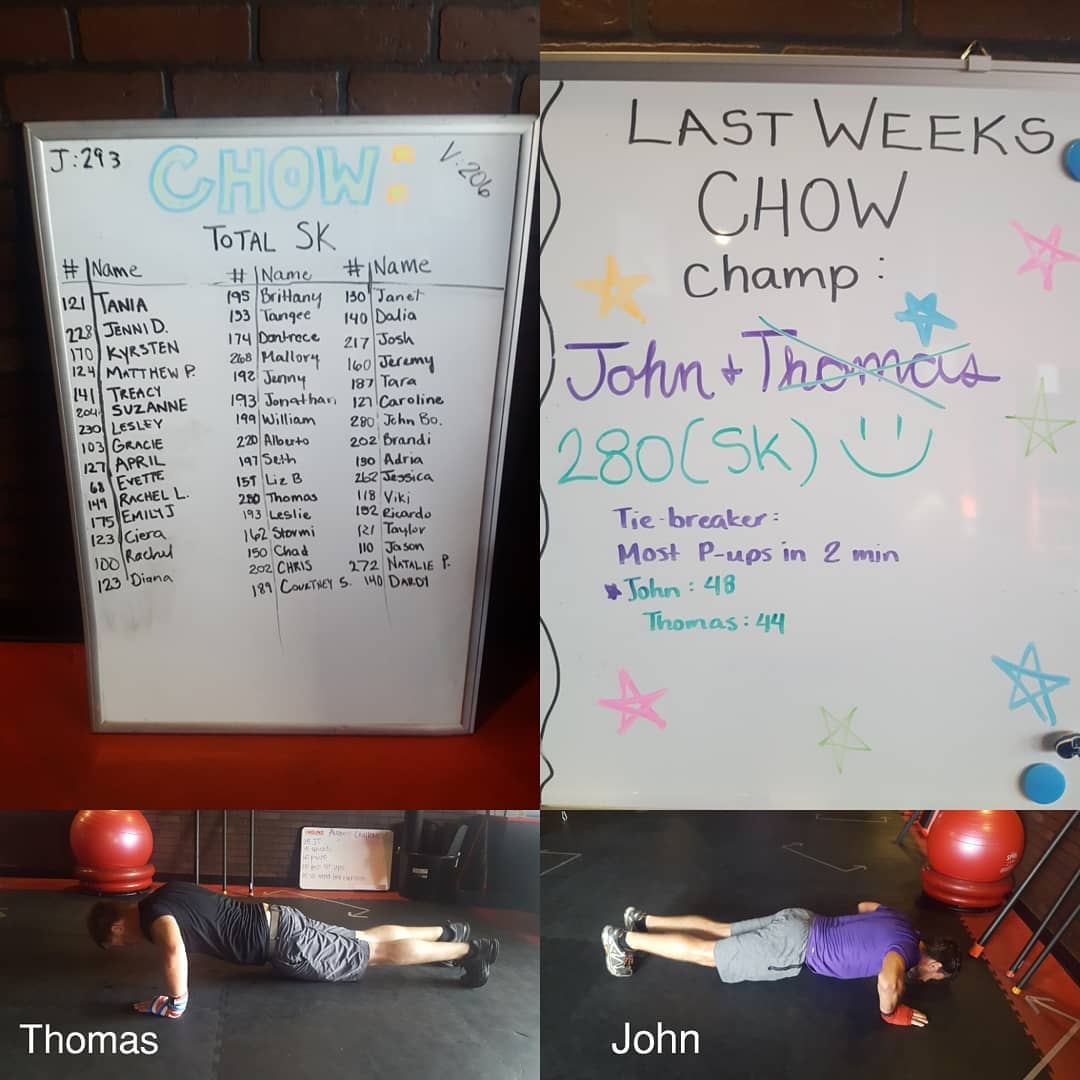 J:293
CHOW:
V:206
TOTAL SK
# Name # Name # Name
121 TANIA 195 Brittany 130 Janet
228 JENNI D. 133 Tangee 140 Dalia
170 KYRSTEN 174 Dontrece 217 Josh
124 MATTHEW P. 268 Mallory 160 Jeremy
141 TREACY 192 Jenny 187 Tara
204 SUZANNE 193 Jonathan 127 Caroline
230 LESLEY 199 William 280 John Bo.
103 GRACIE 220 Alberto 202 Brandi
127 APRIL 197 Seth 190 Adria
68 EVETTE 157 Liz B 262 Jessica
149 RACHEL L. 280 Thomas 118 Viki
175 EMILY J 193 Leslie 182 Ricardo
123 Ciera 162 Stormi 121 Taylor
100 Rachel 150 Chad 110 Jason
123 Diana 202 CHRIS 272 NATALIE P.
189 COURTNEY S. 140 DARDY
LAST WEEKS
CHOW
champ:
John + Thomas
280(SK)
Tie-breaker:
Most P-ups in 2 min
John: 48
Thomas: 44
Thomas
John